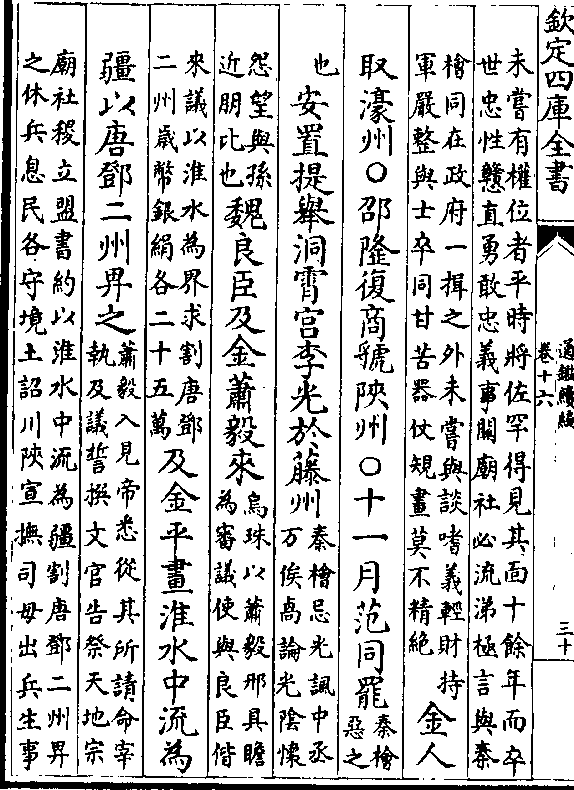 欽定四庫全書
通鑑續編
卷十六
三十
未嘗有權位者平時將佐罕得見其面十餘年而卒
世忠性戇直勇敢忠義事關廟社必流涕極言與秦
檜同在政府一揖之外未嘗與談嗜義輕財持
軍嚴整與士卒同甘苦器仗規畫莫不精絶
金人
取濠州○邵隆復商虢陜州○十一月范同罷
秦檜
惡之
也
安置提舉洞霄宮李光於藤州
秦檜忌光諷中丞
万俟卨論光陰懷
怨望與孫
近朋比也
魏良臣及金蕭毅來
烏珠以蕭毅邢具瞻
為審議使與良臣偕
來議以淮水為界求割唐鄧
二州嵗幣銀絹各二十五萬
及金平畫淮水中流為
疆以唐鄧二州畀之
蕭毅入見帝悉從其所請命宰
執及議誓撰文官告祭天地宗
廟社稷立盟書約以淮水中流為疆割唐鄧二州畀
之休兵息民各守境土詔川陜宣撫司毋出兵生事